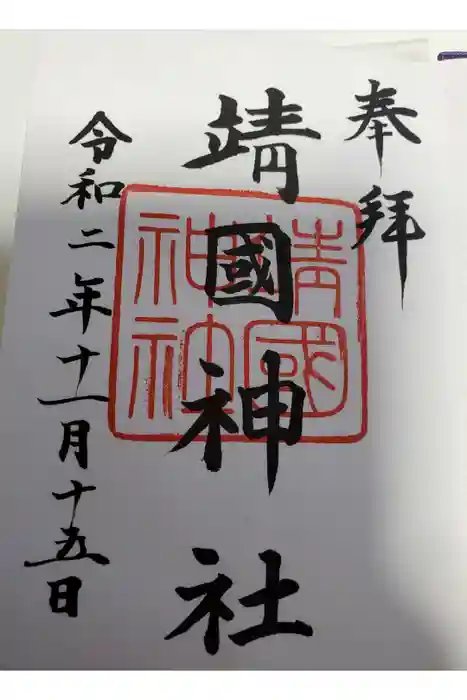 奉拝
靖國神社
靖國神社
令和二年十一月十五日